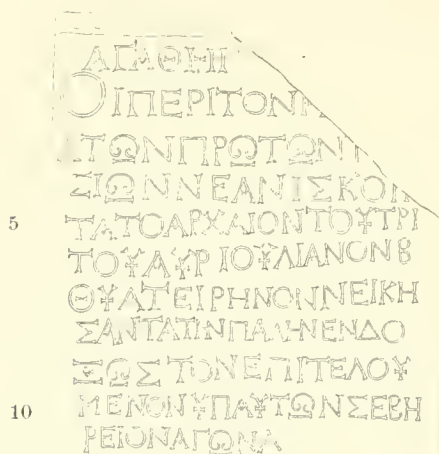 ΑΓΑΘΗΙ
ΟΙΠΕΡΙΤΟΝ
ΤΩΝΠΡΩΤΩΝ
ΣΙΩΝΝΕΑΝΙΣΚΟΙ
5 ΤΑΤΟΑΡΧΑΙΟΝΤΟΥΤΡΙ
ΤΟΥΑΥΡΙΟΥΛΙΑΝΟΝ8
ΘΥΑΤΕΙΡΗΝΟΝΝΕΙΚΗ
ΣΑΝΤΑΤΙΝΠΑΛΗΝΕΝΔΟ
ΞΩΣΤΟΝΕΠΙΤΕΛΟΥ
10 ΜΕΝΟΝΥΠΑΥΤΩΝΣΕΒΗ
ΡΕΙΟΝΑΓΩΝΑ